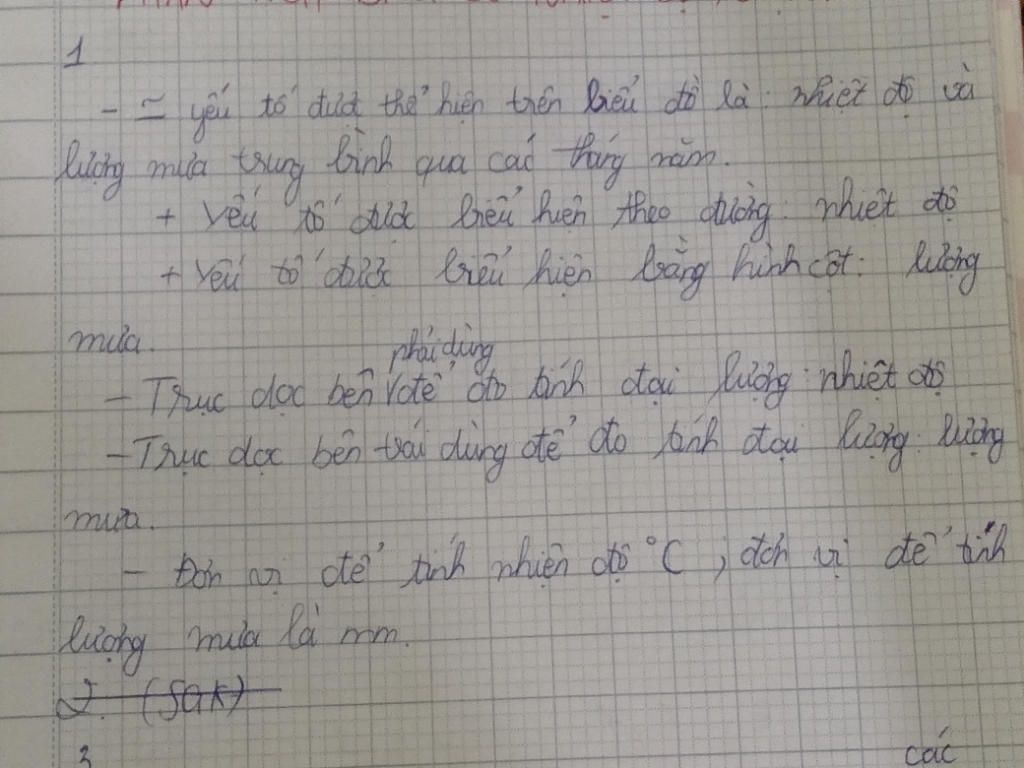 1
- = yếu tố được thể hiện trên biểu đồ là: nhiệt độ và
lượng mưa trung bình qua các tháng năm.
+ Yếu tố được biểu hiện theo đường: nhiệt độ
+ Yếu tố được biểu hiện bằng hình cột: lượng
mưa.
phải dùng
- Trục dọc bên √ để đo tính đại lượng: nhiệt độ
- Trục dọc bên trái dùng để đo tính đại lượng: lượng
mưa.
- Đơn vị để tính nhiện độ °C, đơn vị để tính
lượng mưa là mm.
2. (SGK)
3 các